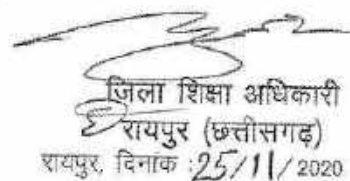 जिला शिक्षा अधिकारी
रायपुर (छत्तीसगढ़)
रायपुर, दिनांक :25/11/2020